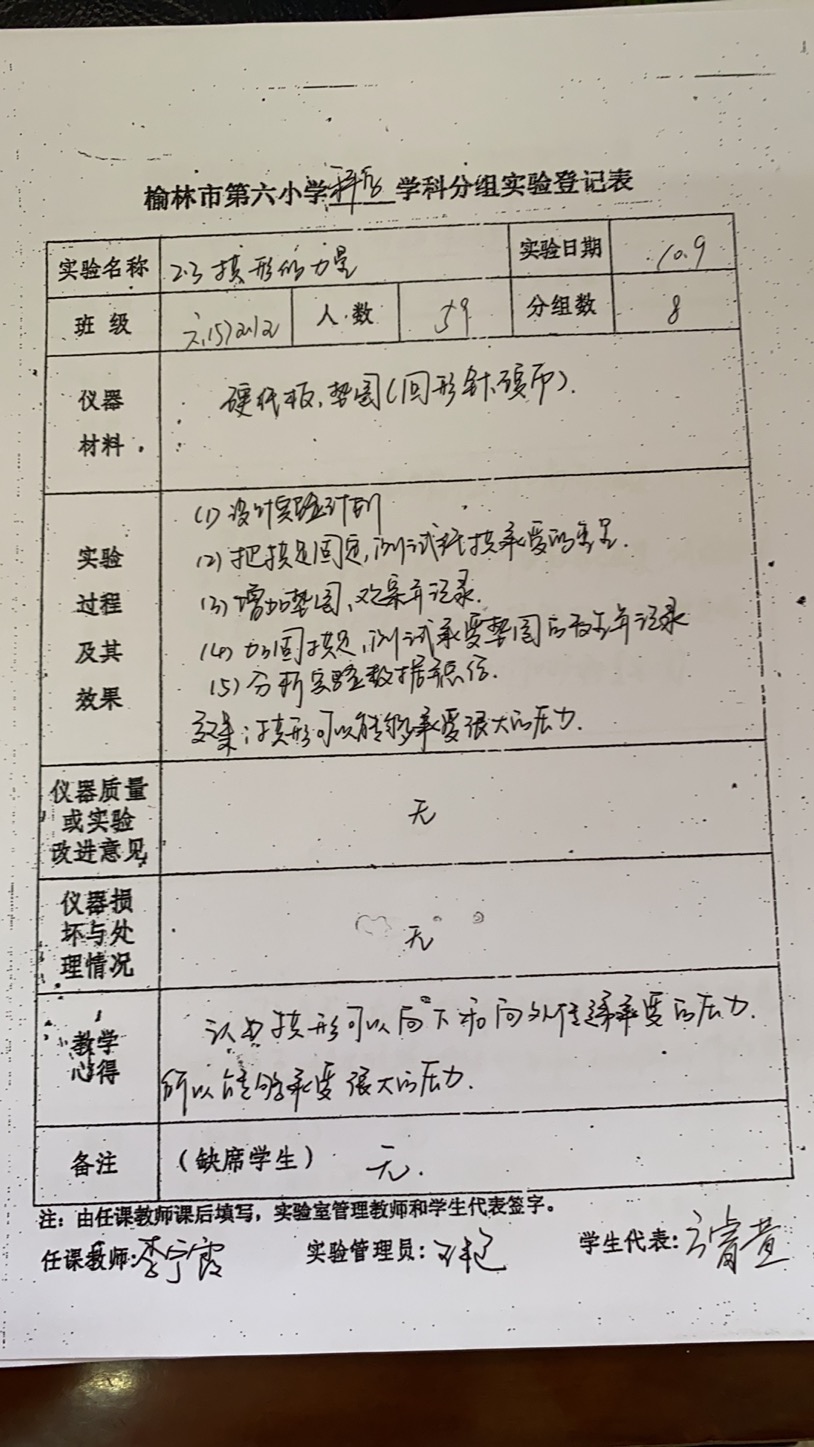 榆林市第六小学科学学科分组实验登记表
实验名称 2.3 拱形的力量 实验日期 10.9
班级 六、(5) 人数 59 分组数 8
仪器材料 硬纸板、垫圈(回形针、硬币).
实验过程及其效果
(1) 设计实验计划
(2) 把拱足固定,测试纸拱承受的重量.
(3) 增加垫圈,观察并记录.
(4) 加固拱足,测试承受垫圈的 并记录
(5) 分析实验数据
效果:拱形可以能够承受很大的压力.
仪器质量或实验改进意见 无
仪器损坏与处理情况 无
教学心得 认为拱形可以向下和向外传递承受的压力.
所以能够承受很大的压力.
备注 (缺席学生) 无.
注:由任课教师课后填写,实验室管理教师和学生代表签字。
任课教师:李宁霞 实验管理员: 学生代表: